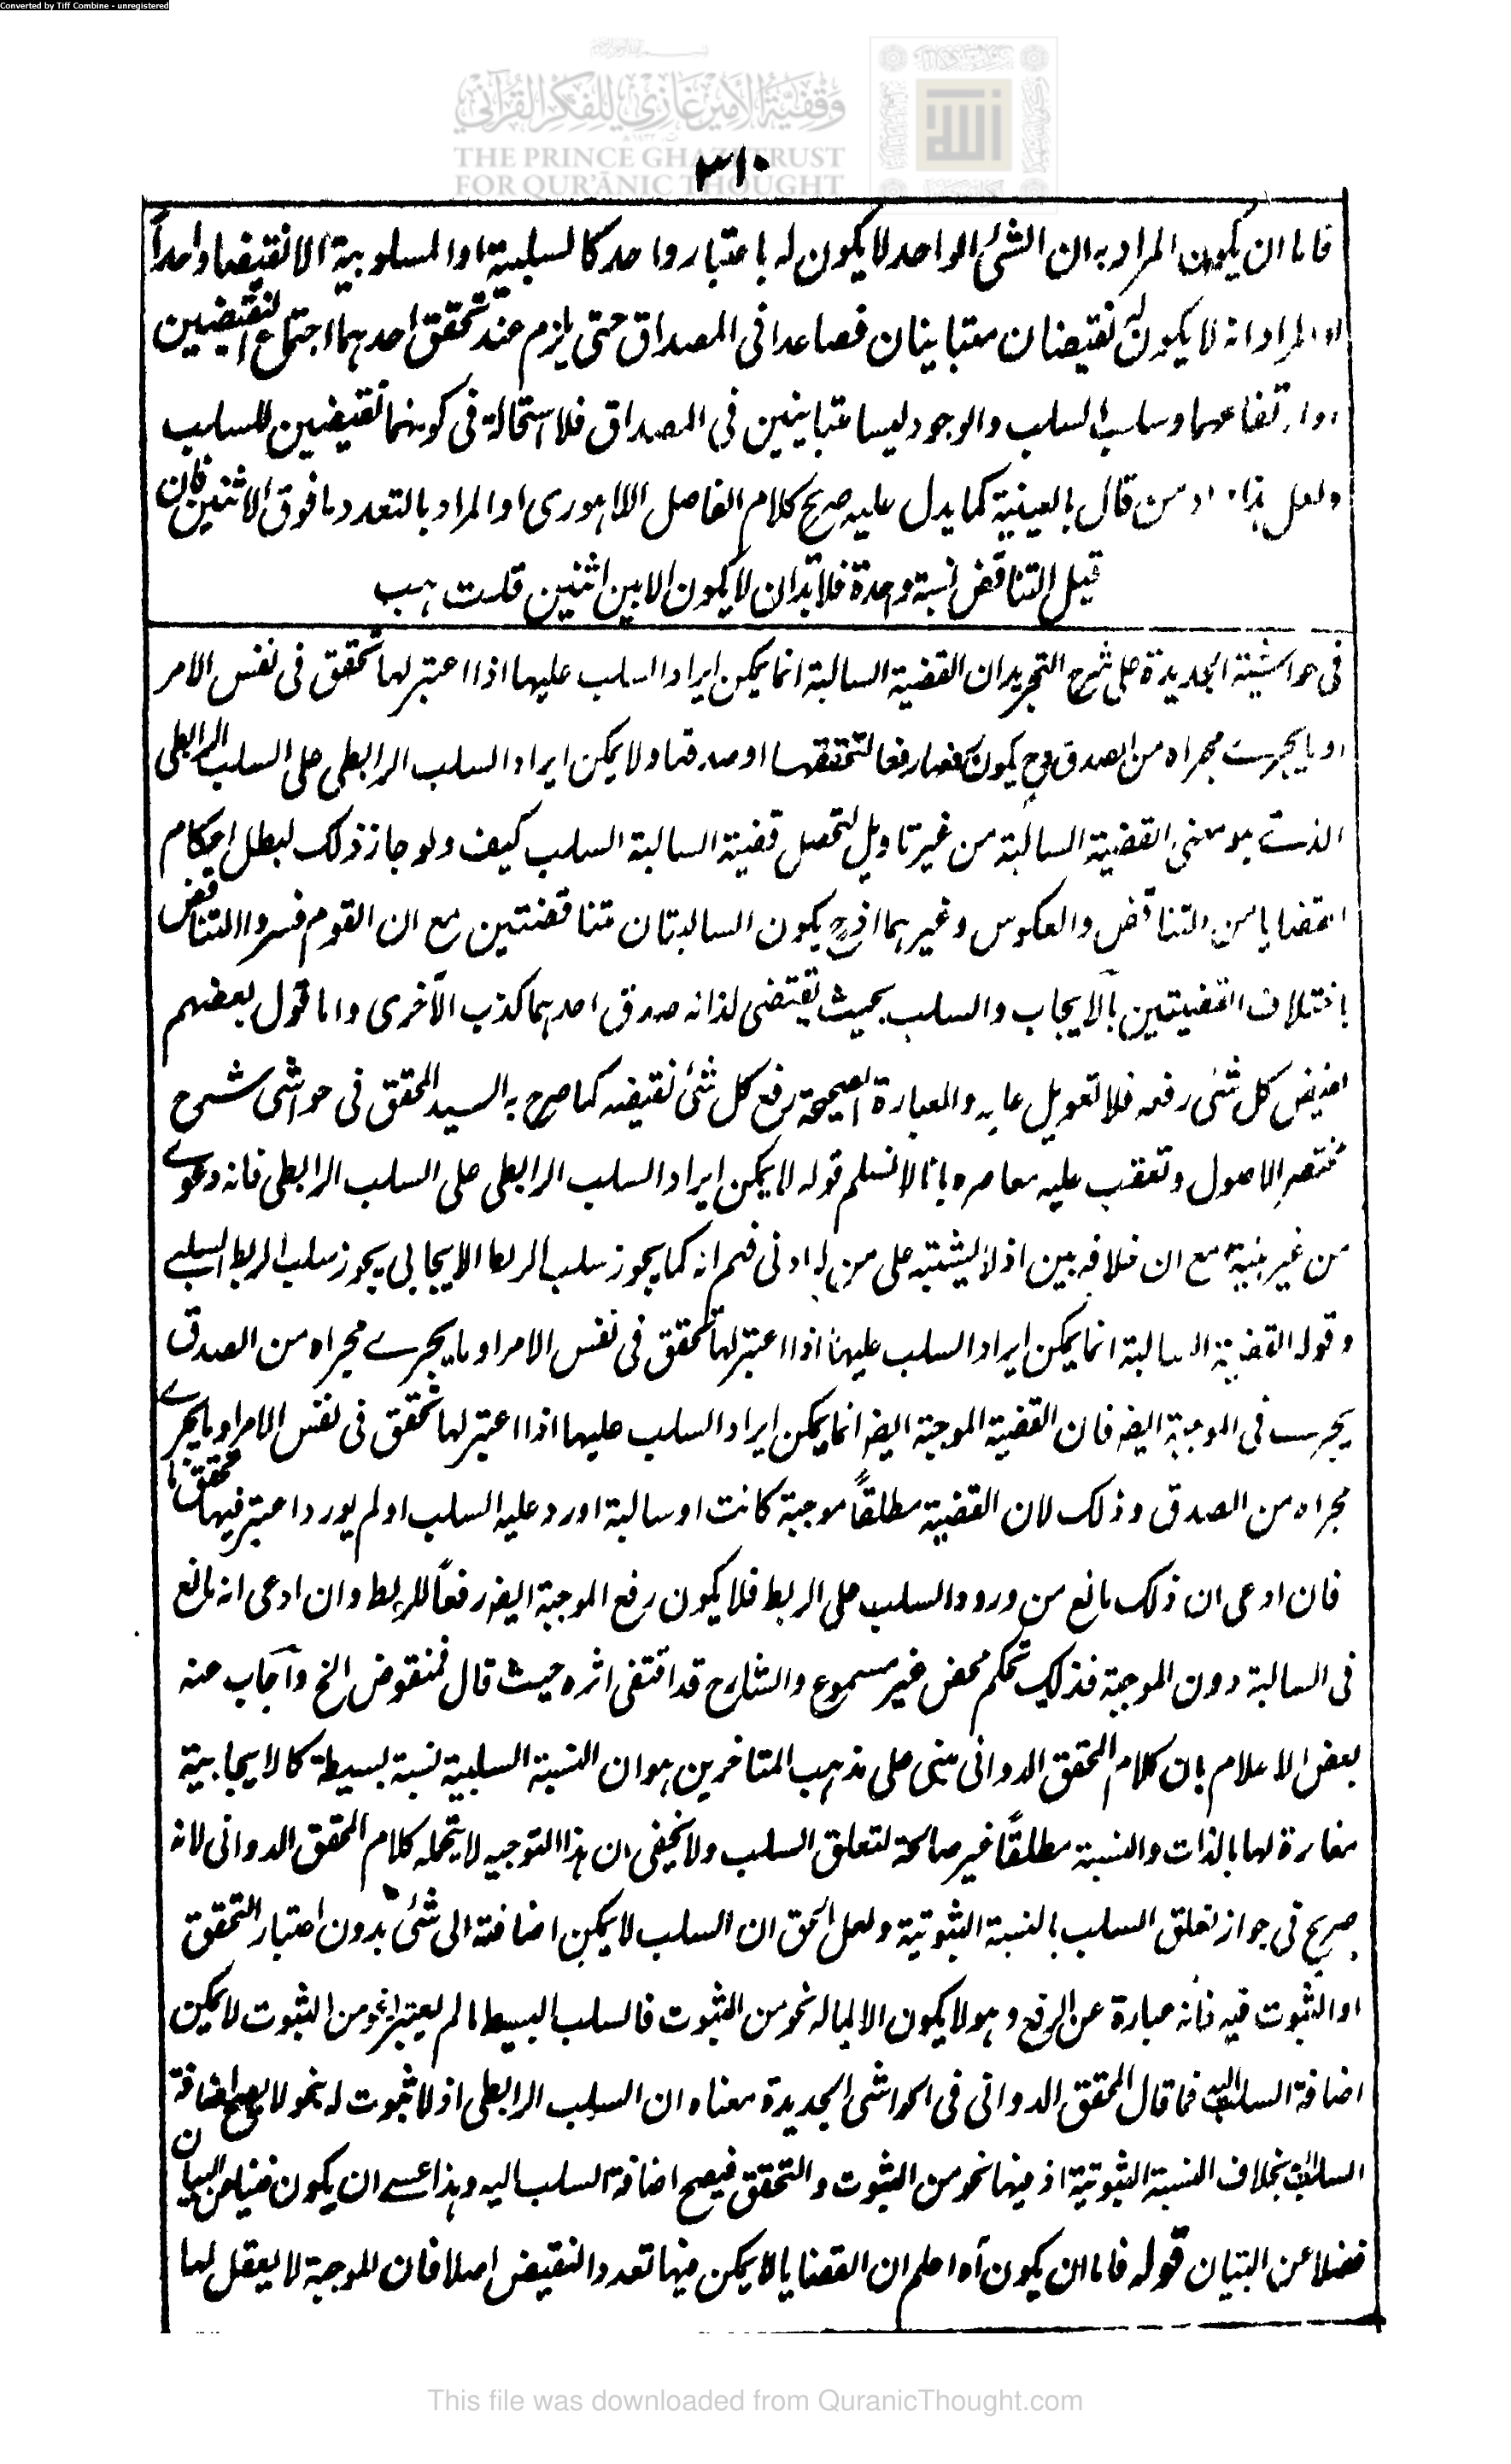 Converted by Tiff Combine - unregistered
وقفية الأمير غازي للفكر القرآني
THE PRINCE GHAZI TRUST
FOR QUR'ĀNIC THOUGHT
٣١٠
فاما ان يكون المراد به ان الشئ الواحد لا يكون له باعتبار واحد كالسلبية او المسلوبية الا نقيضا واحداً
او المراد انه لا يكون له نقيضان متباينان فصاعدا في المصداق حتى يلزم عند تحقق احدهما اجتماع النقيضين
او ارتفاعهما وسلب السلب والوجود ليسا متباينين في المصداق فلا استحالة في كونهما نقيضين للسلب
ولعل هذا مراد من قال بالعينية كما يدل عليه صريح كلام الفاضل اللاهوري او المراد بالتعدد ما فوق الاثنين فان
قيل التناقض نسبة واحدة فلا بد ان لا يكون الا بين اثنين قلت هب
في حواشيه الجديدة على شرح التجريد ان القضية السالبة انما يمكن ايراد السلب عليها اذا اعتبر لها تحقق في نفس الامر
او ما يجرى مجراه من الصدق وح يكون رفعا لتحققها او صدقها ولا يمكن ايراد السلب الرابطى على السلب الرابطى
الذى هو معنى القضية السالبة من غير تاويل لتحصل قضية السالبة السلب كيف ولو جاز ذلك لبطل احكام
القضايا من التناقض والعكوس وغيرهما اذ ح يكون السالبتان متناقضتين مع ان القوم فسروا التناقض
باختلاف القضيتين بالايجاب والسلب بحيث يقتضى لذاته صدق احدهما كذب الاخرى واما قول بعضهم
نقيض كل شئ رفعه فلا تعويل عليه والعبارة الصحيحة رفع كل شئ نقيضه كما صرح به السيد المحقق في حواشى شرح
مختصر الاصول وتعقب عليه معاصره بانا لا نسلم قوله لا يمكن ايراد السلب الرابطى على السلب الرابطى فانه دعوى
من غير بينة مع ان خلافه بين اذ لا يشتبه على من له ادنى فهم انه كما يجوز سلب الربط الايجابى يجوز سلب الربط السلبى
وقوله القضية السالبة انما يمكن ايراد السلب عليها اذا اعتبر لها تحقق في نفس الامر او ما يجرى مجراه من الصدق
يجرى في الموجبة ايضا فان القضية الموجبة ايضا انما يمكن ايراد السلب عليها اذا اعتبر لها تحقق في نفس الامر او ما يجرى
مجراه من الصدق وذلك لان القضية مطلقاً موجبة كانت او سالبة اورد عليه السلب او لم يورد اعتبر فيها تحقق ما
فان ادعى ان ذلك مانع من ورود السلب على الربط فلا يكون رفع الموجبة ايضا رفعاً للربط وان ادعى انه مانع
في السالبة دون الموجبة فذلك تحكم محض غير مسموع والشارح قد اقتفى اثره حيث قال فمنقوض الخ واجاب عنه
بعض الاعلام بان كلام المحقق الدوانى مبنى على مذهب المتاخرين هو ان النسبة السلبية نسبة بسيطة كالايجابية
مغايرة لها بالذات والنسبة مطلقاً غير صالحة لتعلق السلب ولا يخفى ان هذا التوجيه لا يتحمله كلام المحقق الدوانى لانه
صريح في جواز تعلق السلب بالنسبة الثبوتية ولعل الحق ان السلب لا يمكن اضافته الى شئ بدون اعتبار التحقق
او الثبوت فيه فانه عبارة عن الرفع وهو لا يكون الا لما له نحو من الثبوت فالسلب البسيط ما لم يعتبر له نحو من الثبوت لا يمكن
اضافة السلب اليه فما قال المحقق الدوانى في الحواشى الجديدة معناه ان السلب الرابطى اذ لا ثبوت له بنحو لا يصح اضافة
السلب اليه بخلاف النسبة الثبوتية اذ فيها نحو من الثبوت والتحقق فيصح اضافة السلب اليه وهذا عسى ان يكون غنيا عن البيان
فضلا عن التبيان قوله فاما ان يكون اه اعلم ان القضايا لا يمكن فيها تعدد النقيض اصلا فان للموجبة لا يعقل لها
This file was downloaded from QuranicThought.com